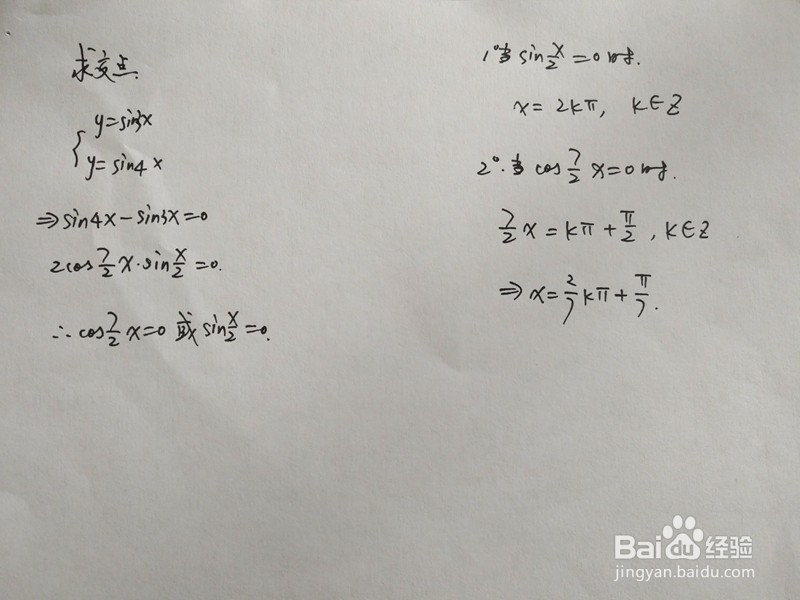 求交点.
y=sin3x
y=sin4x
⇒sin4x-sin3x=0
2cos7/2x·sinx/2=0.
∴cos7/2x=0或sinx/2=0.
1°当sinx/2=0时.
x=2kπ, k∈Z
2°.当cos7/2x=0时.
7/2x=kπ+π/2, k∈Z
⇒x=2/7kπ+π/7.
Baidu经验
jingyan.baidu.com